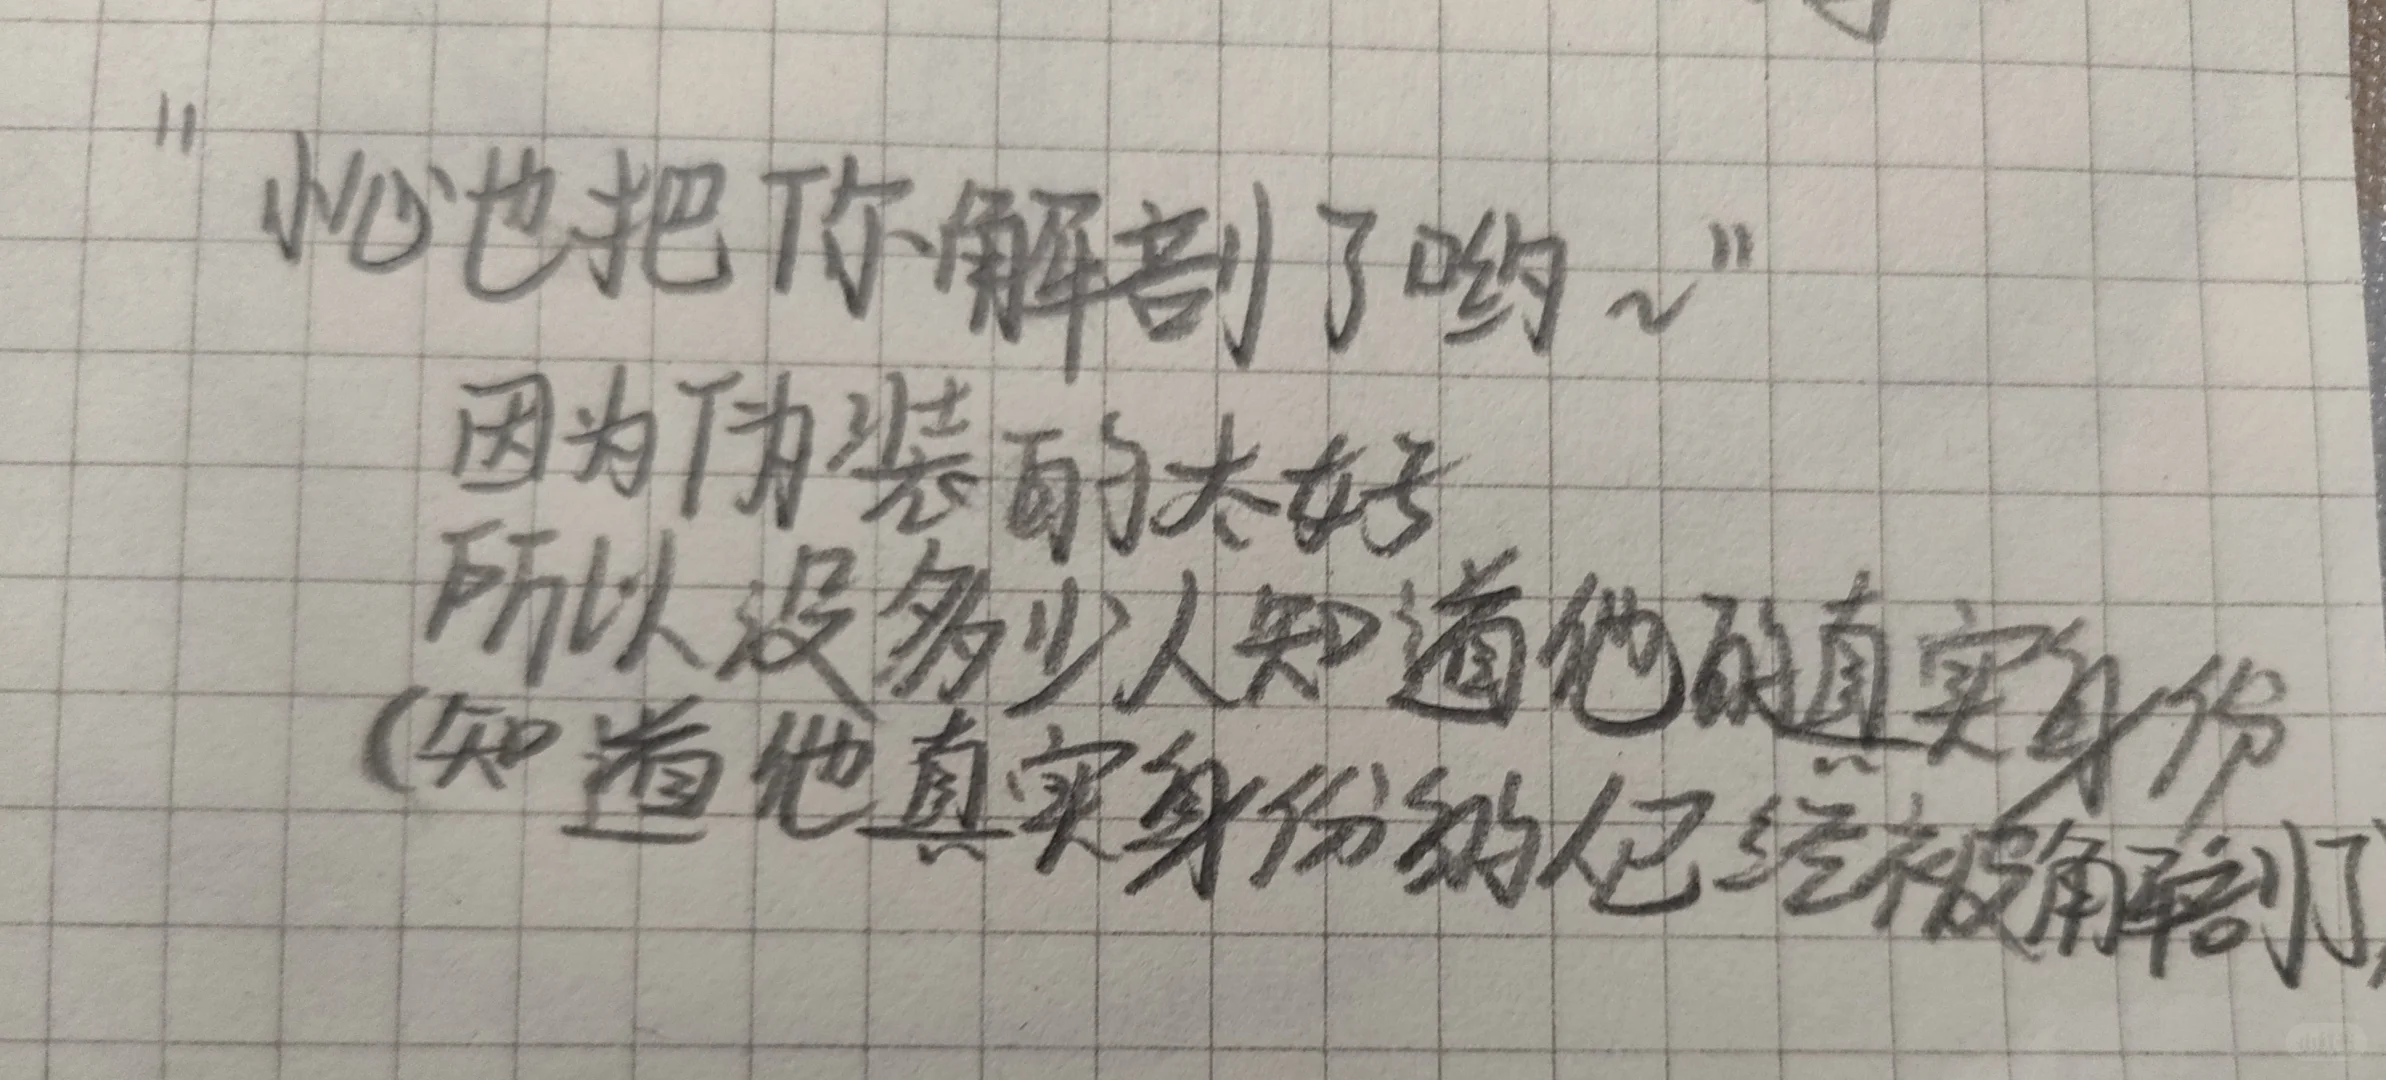 "小心也把你解剖了哟~"
因为伪装的太好
所以没多少人知道他的真实身份
(知道他真实身份的人已经被解剖了)